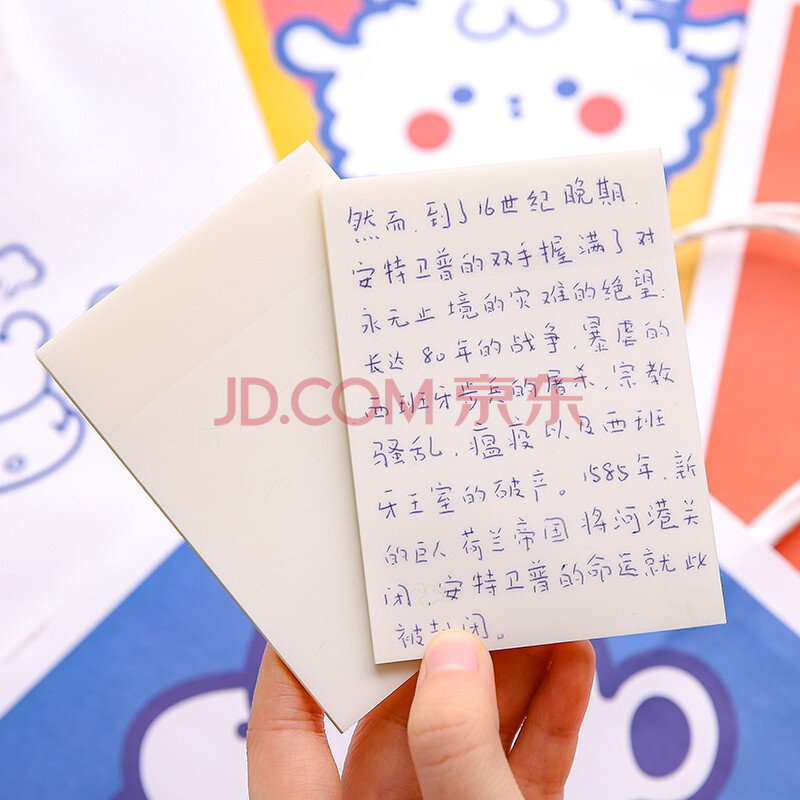 然而,到了16世纪晚期,
安特卫普的双手握满了对
永无止境的灾难的绝望:
长达80年的战争,暴虐的
西班牙步兵的屠杀,宗教
骚乱,瘟疫以及西班
牙王室的破产。1585年,新
的巨人荷兰帝国将河港关
闭,安特卫普的命运就此
被封闭。
JD.COM 京东